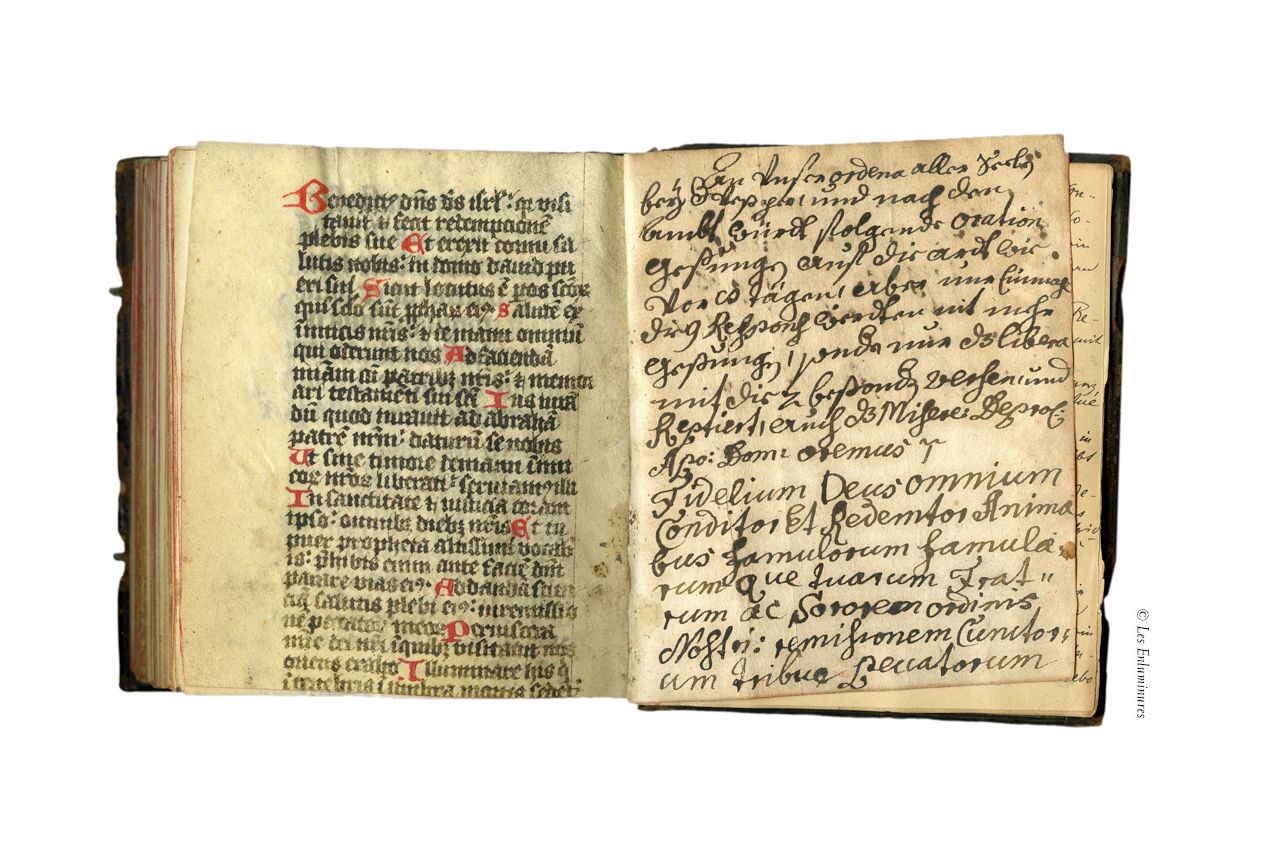 Benedictus dns ds isrl: qr visi
tavit et fecit redempcione
plebis sue Et erexit cornu sa
lutis nobis: in domo david pu
eri sui Sicut locutus e p os scor
qui a sclo sunt pphar ei9 Salute ex
inimicis nris: et de manu omniu
qui oderunt nos Ad faciendã
miam cu patribz nris: et memor
ari testamen sui sci Ius iurã
du quod iuravit ad abrahã
patre nrm: daturu se nobis
Ut sine timore de manu inimi
cor nror liberati: serviam9 illi
In sanctitate et iusticia coram
ipso: omnibz diebz nris Et tu
puer propheta altissimi vocab
is: preibis enim ante facie dni
parare vias ei9 Ad danda scien
ciã salutis plebi ei9: in remissio
ne peccator eor Per viscera
mie dei nri: in quibz visitavit nos
oriens ex alto Illuminare his q
in tenebris et in umbra mortis sedet
In Unser ordens aller Seelen
bey und nach dem
ambt würdt folgende Oration
Gesungen auff die ardt wie
Vor tägen, aber nur Einmal
die 9 werdten nit mehr
Gesungen, sonder nur dz libera
mit die 2 besonder versen, und
Repetiert, auch dz Misere: De prof:
Dom: oremus
Fidelium Deus omnium
Conditor Et Redemtor Anima
bus famulorum famula=
rum que tuarum Frat=
rum ac Sororem ordinis
Nostri: remissionem Cunctor=
um tribue peccatorum
© Les Enluminures